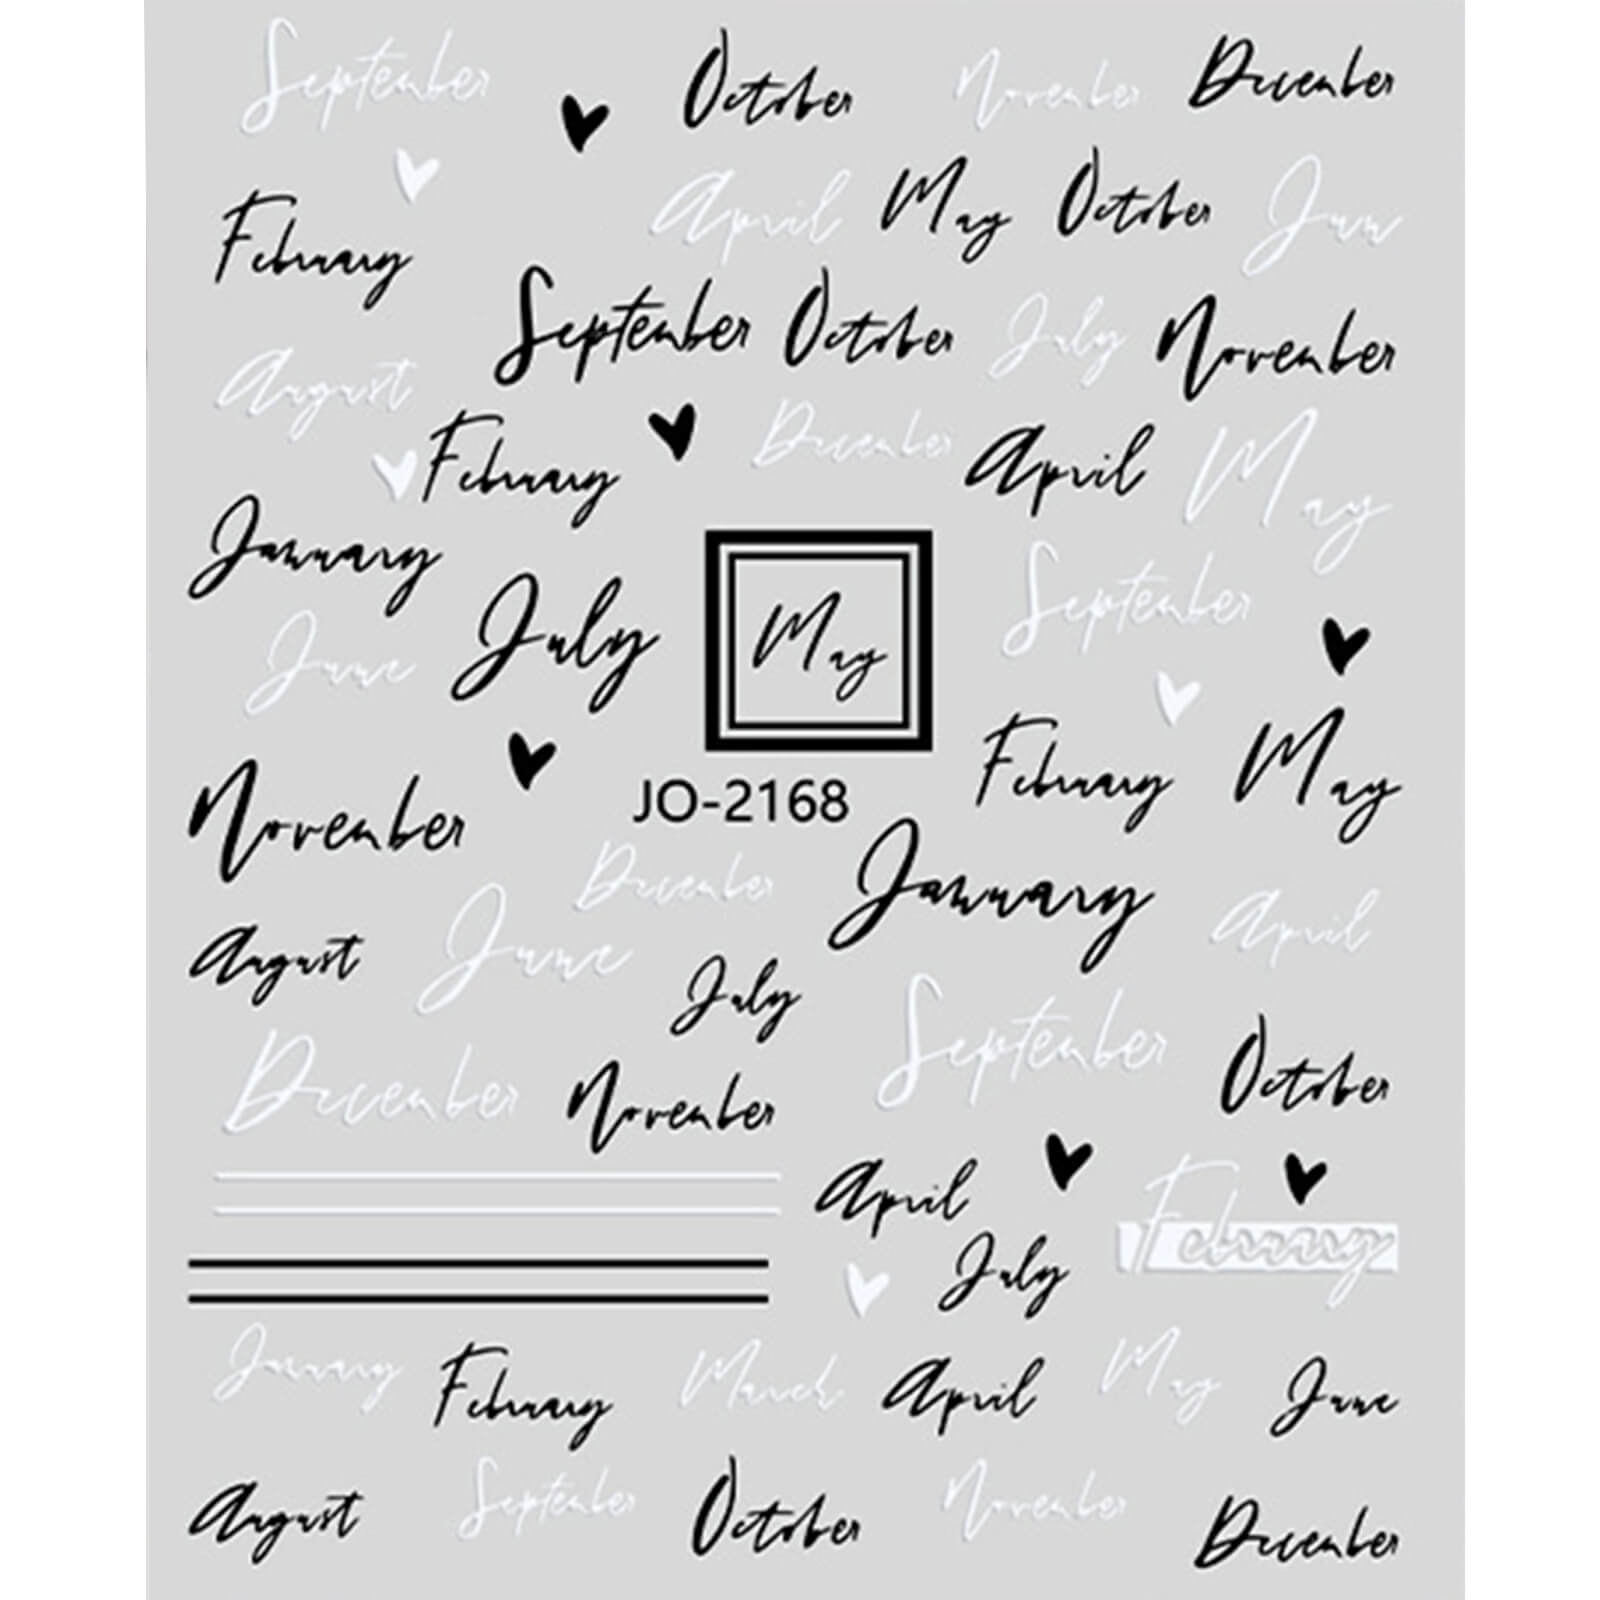 September October November December
February April May October Jun
September October July November
August February December April May
January September
June July May
February May
November JO-2168
December January
August June July April
September October
December November
April February
July
January February March April May June
August September October November December